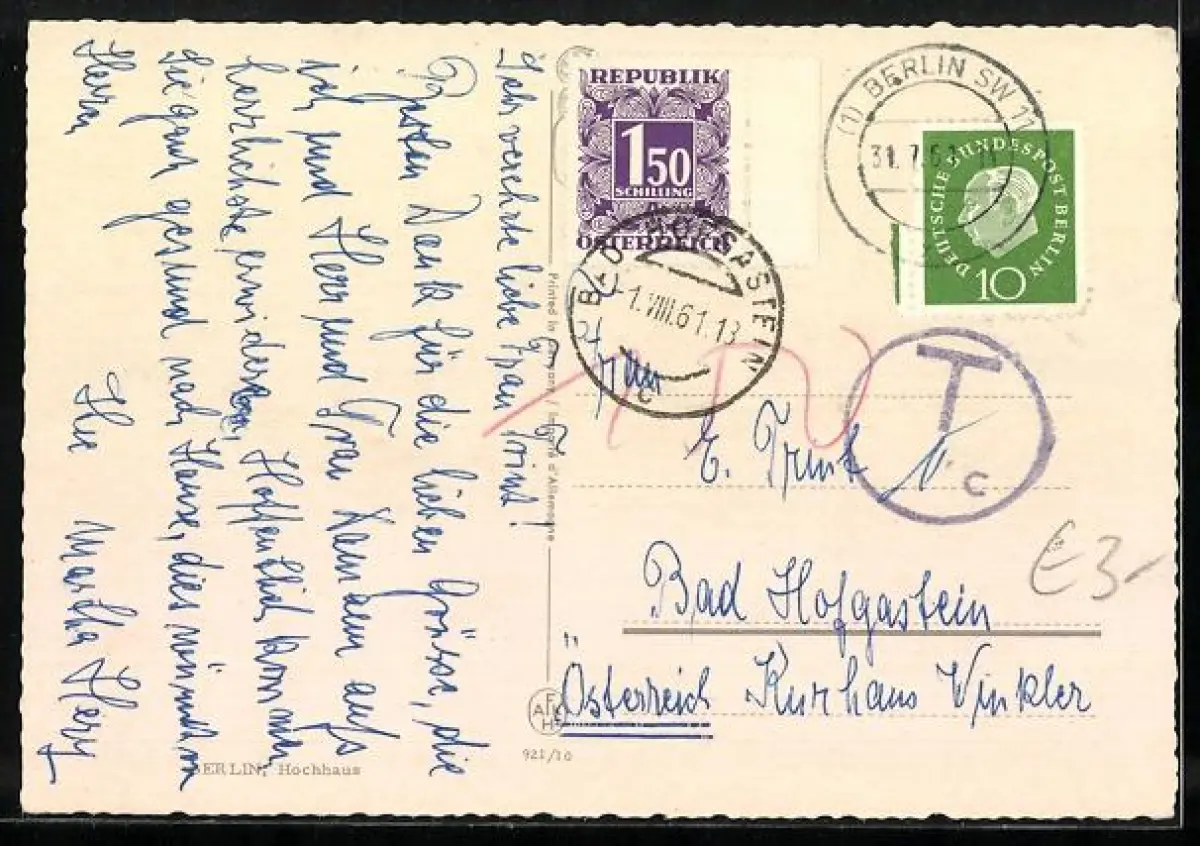 Sehr verehrte liebe Frau Trint!
Besten Dank für die lieben Grüsse, die
ich und Herr und Frau aufs
herrlichste erwidern. Hoffentlich kommen
Sie gut gesund nach Hause, dies wünscht
Ihnen
Ihre Martha Herz
BERLIN, Hochhaus
Printed in Germany / Imprimé d'Allemagne
AFKH
921/10
REPUBLIK
1 50
SCHILLING
ÖSTERREICH
BAD HOFGASTEIN
-1.VIII.61.13
c
(1) BERLIN SW 11
31.7.61
DEUTSCHE BUNDESPOST BERLIN
10
T
c
Frau
E. Trint
Bad Hofgastein
Österreich Kurhaus Winkler
€3-